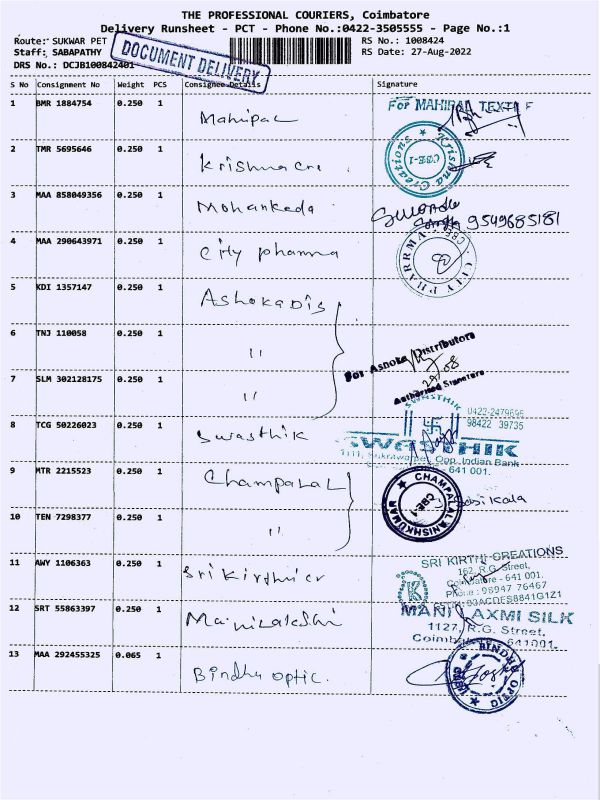 THE PROFESSIONAL COURIERS, Coimbatore
Delivery Runsheet - PCT - Phone No.:0422-3505555 - Page No.:1
Route: SUKWAR PET
RS No.: 1008424
Staff: SABAPATHY
RS Date: 27-Aug-2022
DRS No.: DCJB100842401
DOCUMENT DELIVERY
S No Consignment No Weight PCS Consignee Details Signature
1 BMR 1884754 0.250 1 Mahipal For MAHIPAL TEXTILE
2 TMR 5695646 0.250 1 Krishna cre Krishna Creations CBE-1
3 MAA 858049356 0.250 1 Mohankeda 9549685181
4 MAA 290643971 0.250 1 City pharma CITY PHARRMA CBE
5 KDI 1357147 0.250 1 Ashoka Dis
6 TNJ 110058 0.250 1 "
For Ashoka Distributors
29/08
7 SLM 302128175 0.250 1 "
Authorised Signature
8 TCG 50226023 0.250 1 Swasthik SWASTHIK
0422-2479696
98422 39735
SWASTHIK
1111, Sukrawarpet, Opp. Indian Bank
641 001.
9 MTR 2215523 0.250 1 Champalal CHAMPALAL ANISHKUMAR CBE-1
10 TEN 7298377 0.250 1 "
11 AWY 1106363 0.250 1 Sri Kirthi cr SRI KIRTHI CREATIONS
162, R.G. Street,
Coimbatore - 641 001.
Phone : 98947 76467
12 SRT 55863397 0.250 1 Mani Lakshmi
LAXMI SILK
1127, R.G. Street,
641001.
13 MAA 292455325 0.065 1 Bindhu optic. BINDHU OPTIC